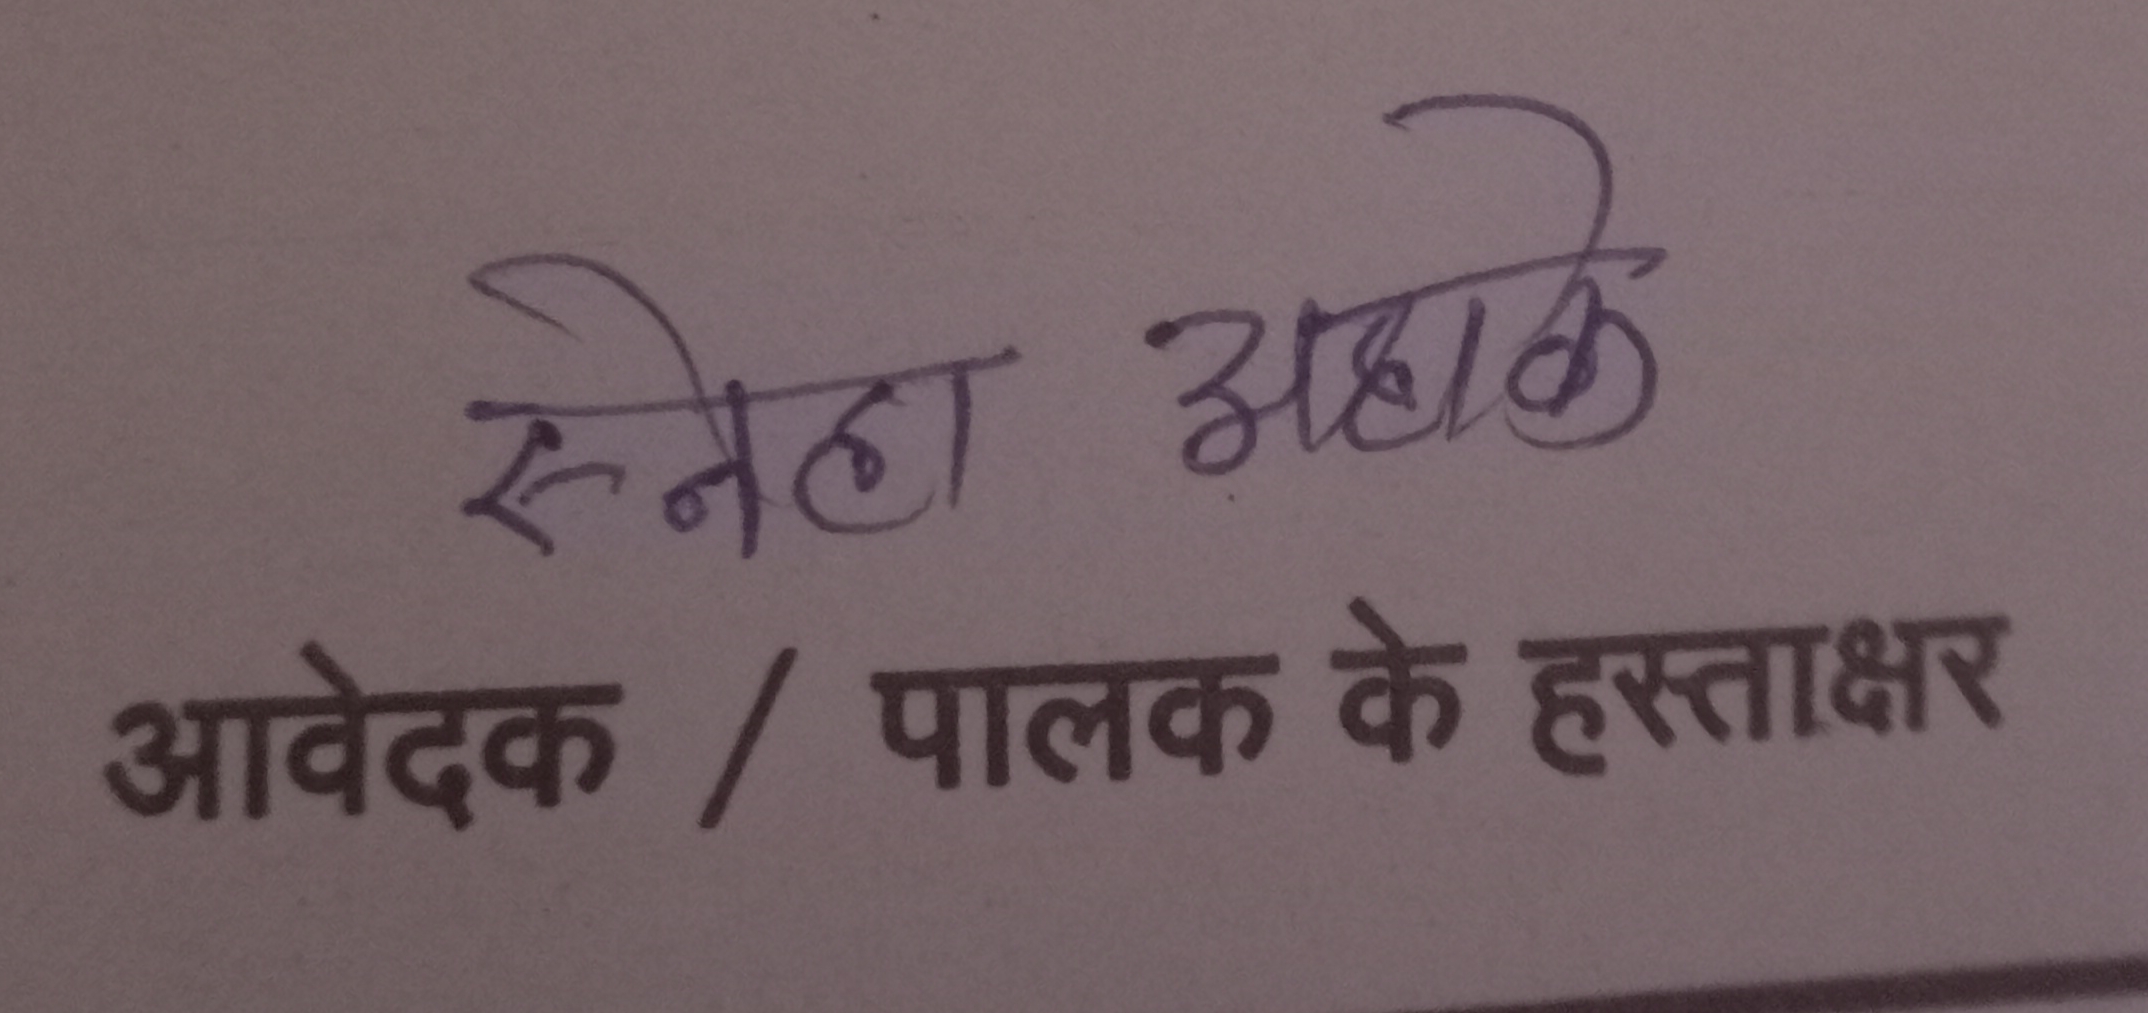 स्नेहा अहाके
आवेदक / पालक के हस्ताक्षर